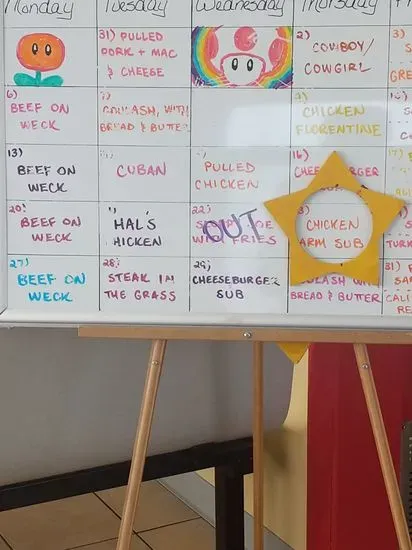 Monday Tuesday Wednesday Thursday
31) PULLED
PORK + MAC
& CHEESE
2)
COWBOY/
COWGIRL
3)
GRE
6)
BEEF ON
WECK
7)
GOULASH, WITH
BREAD & BUTTER
9)
CHICKEN
FLORENTINE
10)
13)
BEEF ON
WECK
CUBAN
PULLED
CHICKEN
16)
CHEE RGER
17)
20)
BEEF ON
WECK
HAL'S
HICKEN
22)
OUT
FRIES
CHICKEN
ARM SUB
TURK
27)
BEEF ON
WECK
28)
STEAK IN
THE GRASS
29)
CHEESEBURGER
SUB
OULASH
BREAD & BUTTER
31)
SA
CALI
RE